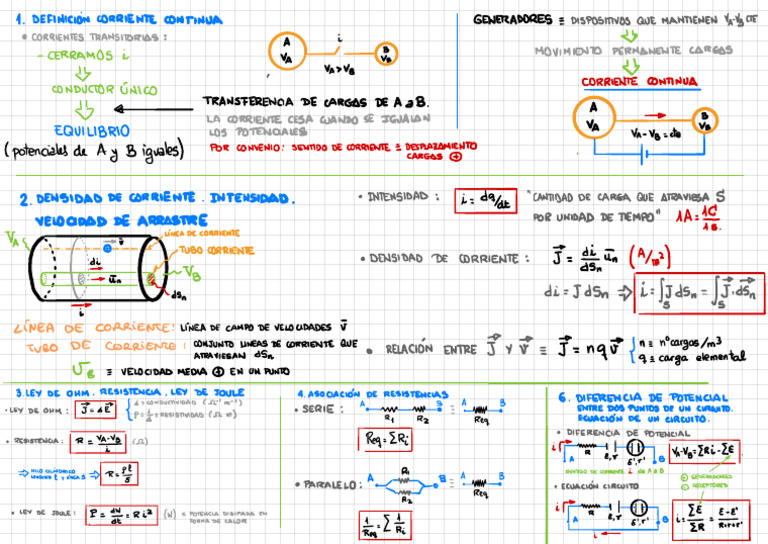 1. DEFINICIÓN CORRIENTE CONTINUA
• CORRIENTES TRANSITORIAS:
- CERRAMOS i
CONDUCTOR ÚNICO
EQUILIBRIO
(potenciales de A y B iguales)
A
V_A
i
B
V_B
V_A > V_B
TRANSFERENCIA DE CARGAS DE A a B.
LA CORRIENTE CESA CUANDO SE IGUALAN
LOS POTENCIALES
POR CONVENIO: SENTIDO DE CORRIENTE ≡ DESPLAZAMIENTO
CARGAS ⊕
GENERADORES ≡ DISPOSITIVOS QUE MANTIENEN V_A-V_B cte
MOVIMIENTO PERMANENTE CARGAS
CORRIENTE CONTINUA
A
V_A
B
V_B
V_A - V_B = cte
2. DENSIDAD DE CORRIENTE. INTENSIDAD.
VELOCIDAD DE ARRASTRE
V_A
LÍNEA DE CORRIENTE
TUBO CORRIENTE
V_B
di
u⃗_n
dS_n
i
LÍNEA DE CORRIENTE: LÍNEA DE CAMPO DE VELOCIDADES v⃗
TUBO DE CORRIENTE: CONJUNTO LINEAS DE CORRIENTE QUE
ATRAVIESAN dS_n
≡ VELOCIDAD MEDIA ⊕ EN UN PUNTO
• INTENSIDAD: i = dq/dt "CANTIDAD DE CARGA QUE ATRAVIESA S
POR UNIDAD DE TIEMPO" 1A = 1C/1s.
• DENSIDAD DE CORRIENTE: J⃗ = di/dS_n u⃗_n (A/m²)
di = J dS_n ⇒ i = ∫_S J dS_n = ∫_S J⃗·dS⃗_n
• RELACIÓN ENTRE J⃗ Y v⃗ ≡ J⃗ = n q v⃗
n ≡ nº cargas/m³
q ≡ carga elemental
3. LEY DE OHM. RESISTENCIA. LEY DE JOULE
• LEY DE OHM:
≡ CONDUCTIVIDAD (Ω⁻¹ m⁻¹)
≡ RESISTIVIDAD (Ω m)
• RESISTENCIA: R = V_A-V_B/i (Ω)
⇒ HILO CILÍNDRICO
⇒ R = ρl/S
• LEY DE JOULE: P = dW/dt = R i² (W) ≡ POTENCIA DISIPADA EN
FORMA DE CALOR
4. ASOCIACIÓN DE RESISTENCIAS
• SERIE: A R₁ R₂ B ≡ Req
Req = ΣRi
• PARALELO: A R₁ R₂ B ≡ A B Req
1/Req = Σ 1/Ri
6. DIFERENCIA DE POTENCIAL
ENTRE DOS PUNTOS DE UN CIRCUITO.
ECUACIÓN DE UN CIRCUITO.
• DIFERENCIA DE POTENCIAL
A R E,r E',r' B
SENTIDO DE CORRIENTE i DE A a B
V_A-V_B = ΣRi - ΣE
⊕ GENERADORES
⊖ RECEPTORES
• ECUACIÓN CIRCUITO
A R E,r E',r' B
i
i = ΣE/ΣR = E-E'/R+r+r'